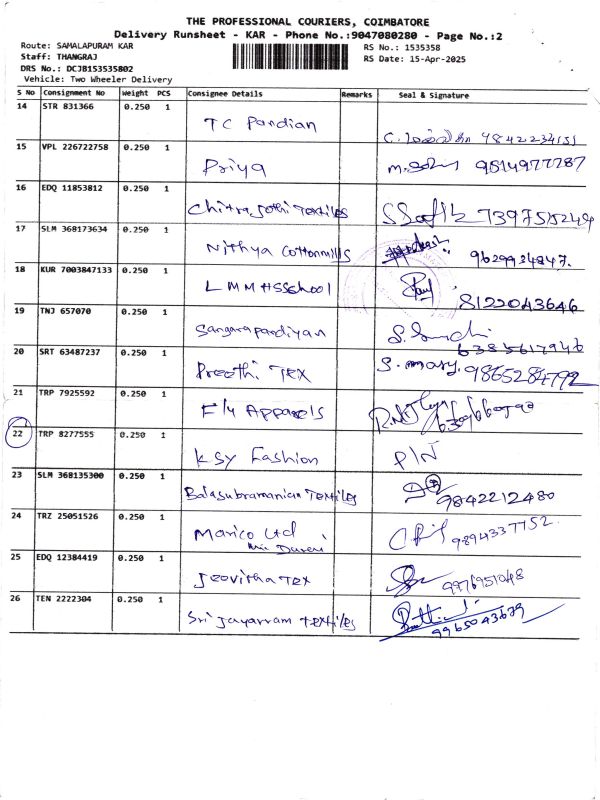 THE PROFESSIONAL COURIERS, COIMBATORE
Delivery Runsheet - KAR - Phone No.:9047080280 - Page No.:2
Route: SAMALAPURAM KAR
RS No.: 1535358
Staff: THANGRAJ
RS Date: 15-Apr-2025
DRS No.: DCJB153535802
Vehicle: Two Wheeler Delivery
S No Consignment No Weight PCS Consignee Details Remarks Seal & Signature
14 STR 831366 0.250 1 TC Pandian 9842234151
15 VPL 226722758 0.250 1 Priya 9514977787
16 EDQ 11853812 0.250 1 Chitrajothi Textiles 7397515249
17 SLM 368173634 0.250 1 Nithya Cottonmills 9629924847.
18 KUR 7003847133 0.250 1 LMMHSSchool 8122043646
19 TNJ 657070 0.250 1 Sangarapandiyan 6385617946
20 SRT 63487237 0.250 1 Preethi Tex S. mary. 9865284792
21 TRP 7925592 0.250 1 Fly Apparels
22 TRP 8277555 0.250 1 KSY Fashion P/N
23 SLM 368135300 0.250 1 Balasubramanian Textiles 9842212480
24 TRZ 25051526 0.250 1 Marico Ltd 9894337752
25 EDQ 12384419 0.250 1 Jeovitha Tex 9976951048
26 TEN 2222304 0.250 1 Sri Jayarram textiles 9965043679